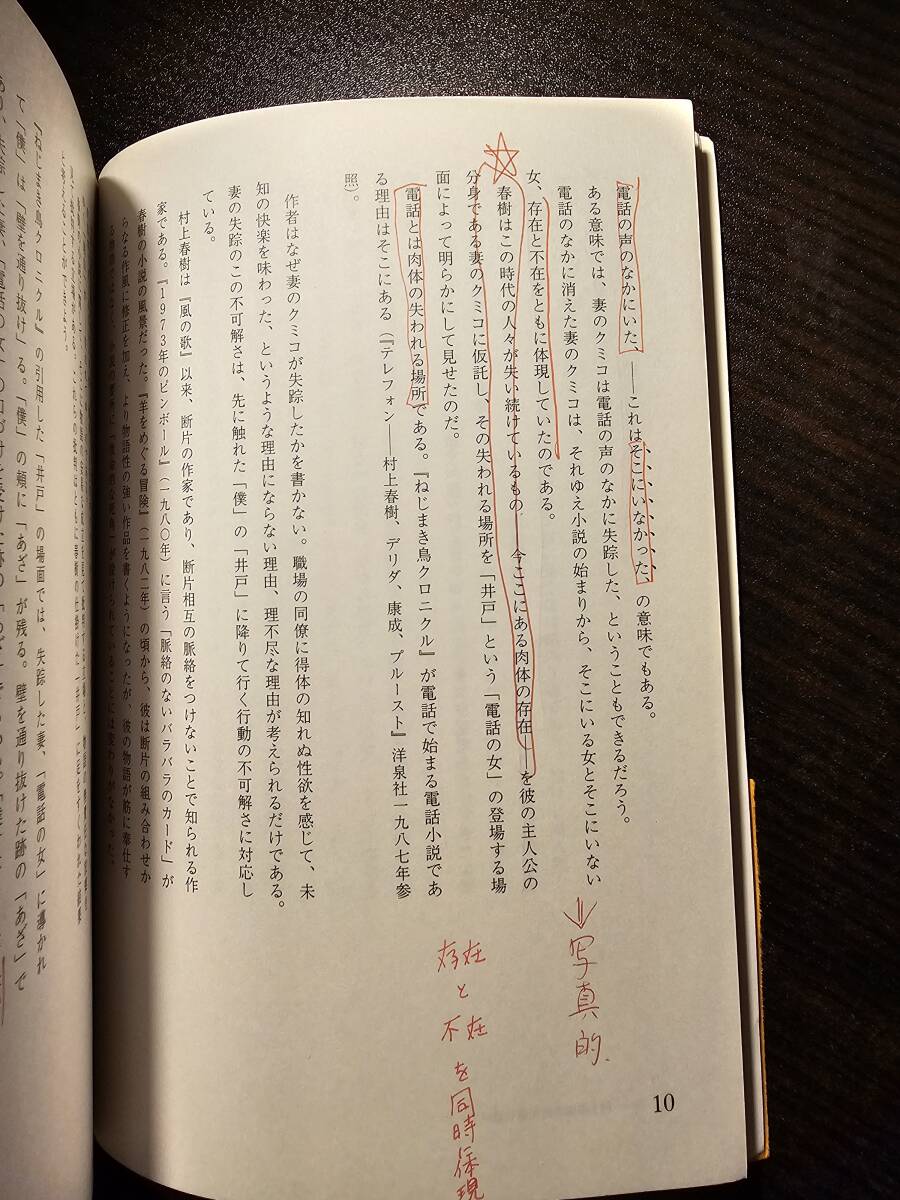 電話の声のなかにいた、――これはそこにいなかった、の意味でもある。
ある意味では、妻のクミコは電話の声のなかに失踪した、ということもできるだろう。
電話のなかに消えた妻のクミコは、それゆえ小説の始まりから、そこにいる女とそこにいない
女、存在と不在をともに体現していたのである。
春樹はこの時代の人々が失い続けているもの――今ここにある肉体の存在――を彼の主人公の
分身である妻のクミコに仮託し、その失われる場所を「井戸」という「電話の女」の登場する場
面によって明らかにして見せたのだ。
電話とは肉体の失われる場所である。『ねじまき鳥クロニクル』が電話で始まる電話小説であ
る理由はそこにある（『テレフォン――村上春樹、デリダ、康成、プルースト』洋泉社一九八七年参
照）。
作者はなぜ妻のクミコが失踪したかを書かない。職場の同僚に得体の知れぬ性欲を感じて、未
知の快楽を味わった、というような理由にならない理由、理不尽な理由が考えられるだけである。
妻の失踪のこの不可解さは、先に触れた「僕」の「井戸」に降りて行く行動の不可解さに対応し
ている。
村上春樹は『風の歌』以来、断片の作家であり、断片相互の脈絡をつけないことで知られる作
家である。『1973年のピンボール』（一九八〇年）に言う「脈絡のないバラバラのカード」が
春樹の小説の風景だった。『羊をめぐる冒険』（一九八二年）の頃から、彼は断片の組み合わせか
らなる作風に修正を加え、より物語性の強い作品を書くようになったが、彼の物語が筋に奉仕す
られていることには変わりがなかった。
⇒写真的.
存在
と
不在
を同時体現
10
と考えることができよう。
『ねじまき鳥クロニクル』の引用した「井戸」の場面では、失踪した妻、「電話の女」に導かれ
て「僕」は「壁を通り抜け」る。「僕」の頬に「あざ」が残る。壁を通り抜けた跡の「あざ」で